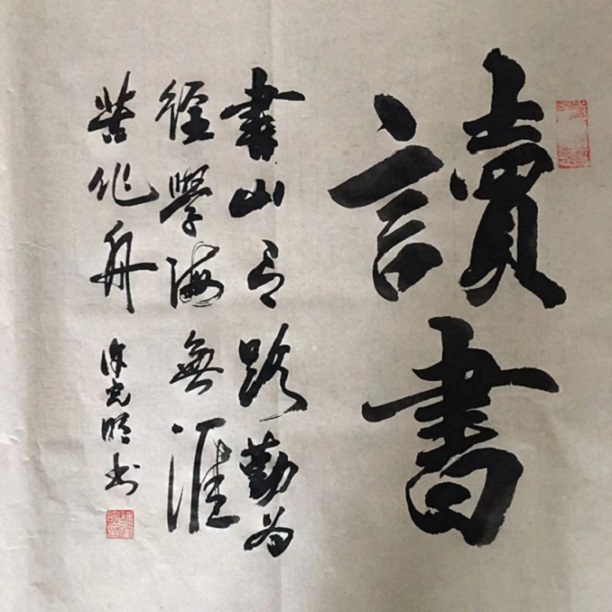 讀書
書山有路勤為
徑學海無涯
苦作舟